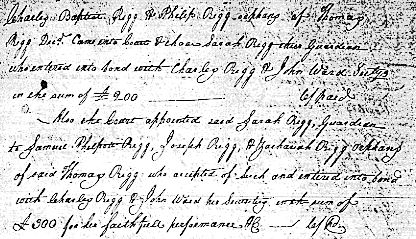 Charles Baptist Rigg & Philip Rigg orphans of Thomas
Rigg Decd. Came into Court & chose Sarah Rigg their Guardian
who entered into bond with Charles Rigg & John Ward Suty
in the sum of £200 paid
Also the Court appointed said Sarah Rigg, Guardian
to Samuel Rigg, Joseph Rigg, & Zachariah Rigg orphans
of said Thomas Rigg who accepted of such and entered into bond
with Charles Rigg & John Ward her Security, in the sum of
£300 for her faithfull performance &c